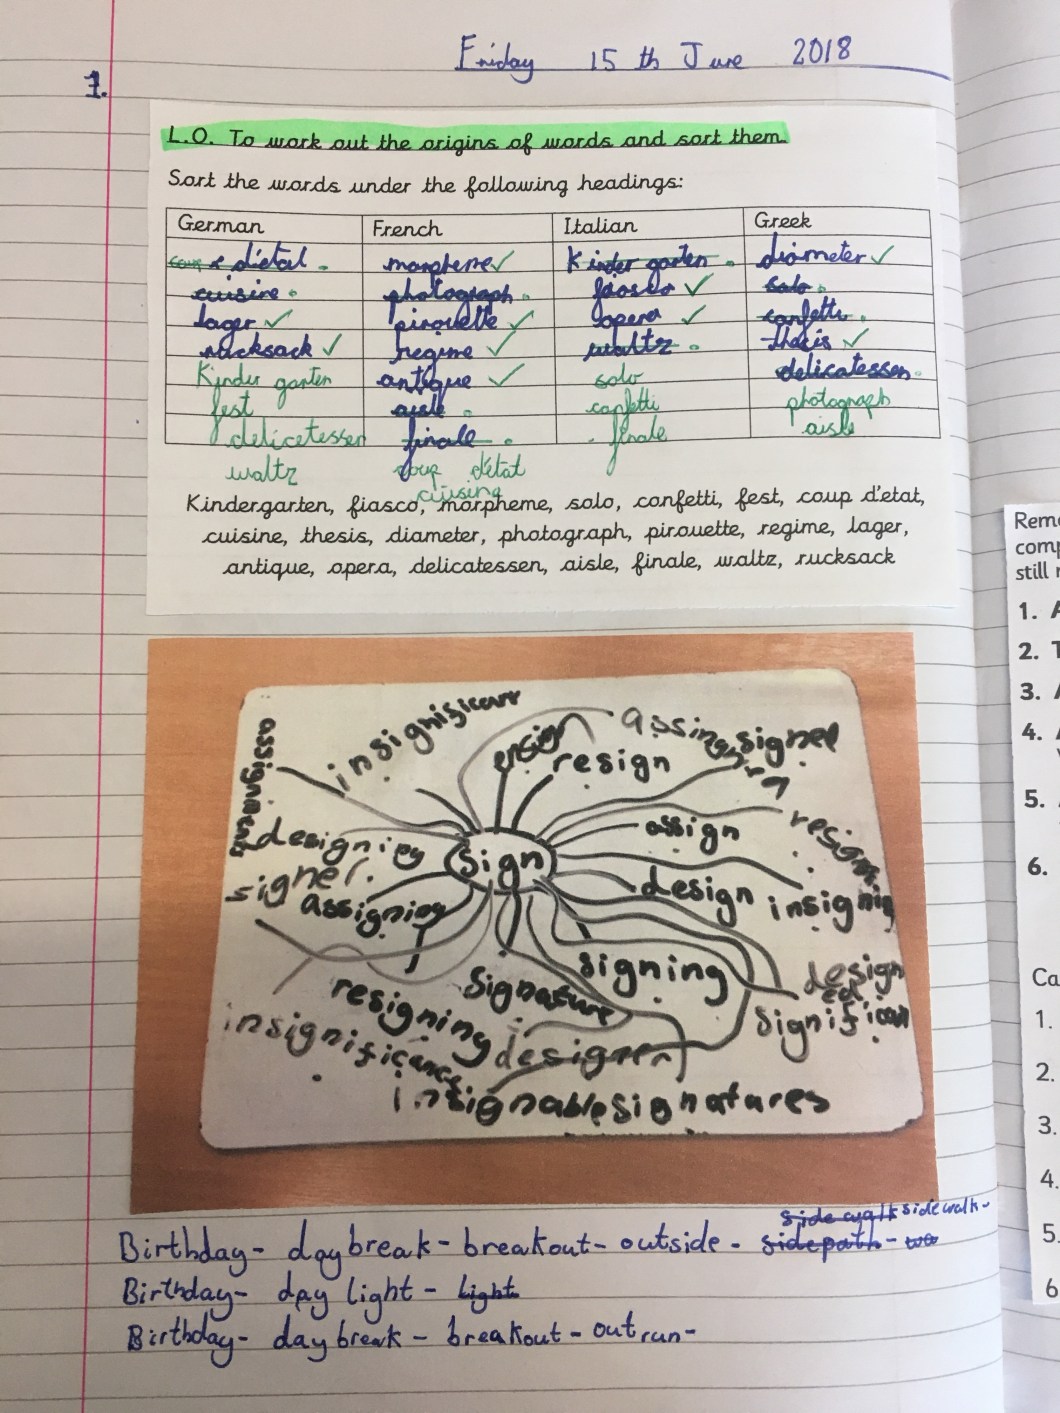 Friday 15 th June 2018
1.
L.O. To work out the origins of words and sort them.
Sort the words under the following headings:
German French Italian Greek
coup d'etat . morpheme ✓ Kinder garten . diameter ✓
cuisine . photograph . fiasco ✓ solo .
lager ✓ pirouette ✓ opera ✓ confetti .
rucksack ✓ regime ✓ waltz . thesis ✓
Kinder garten antique ✓ solo delicatessen .
fest aisle . confetti photograph
delicetessen finale . finale aisle
waltz coup d'etat
cuising
Kindergarten, fiasco, morpheme, solo, confetti, fest, coup d'etat,
cuisine, thesis, diameter, photograph, pirouette, regime, lager,
antique, opera, delicatessen, aisle, finale, waltz, rucksack
insignificant
ensign
resign
signed
assign
designing
sign
signer.
assigning
design
insignia
signing
resigning
signature
designed
significant
insignificance
designer
insignable
signatures
side walk sidewalk-
Birthday- daybreak- breakout- outside - sidepath - wa
Birthday- day light - Light
Birthday- day break - breakout - outrun -
Rem
comp
still
1. A
2. T
3. A
4.
5.
6.
Ca
1.
2.
3.
4.
5.
6